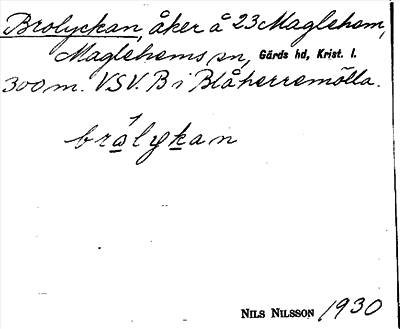 Brolyckan, åker å 23 Maglehem,
Maglehems sn, Gärds hd, Krist. l.
300 m. VSV. B i Blåherremölla.
brålykan
NILS NILSSON 1930